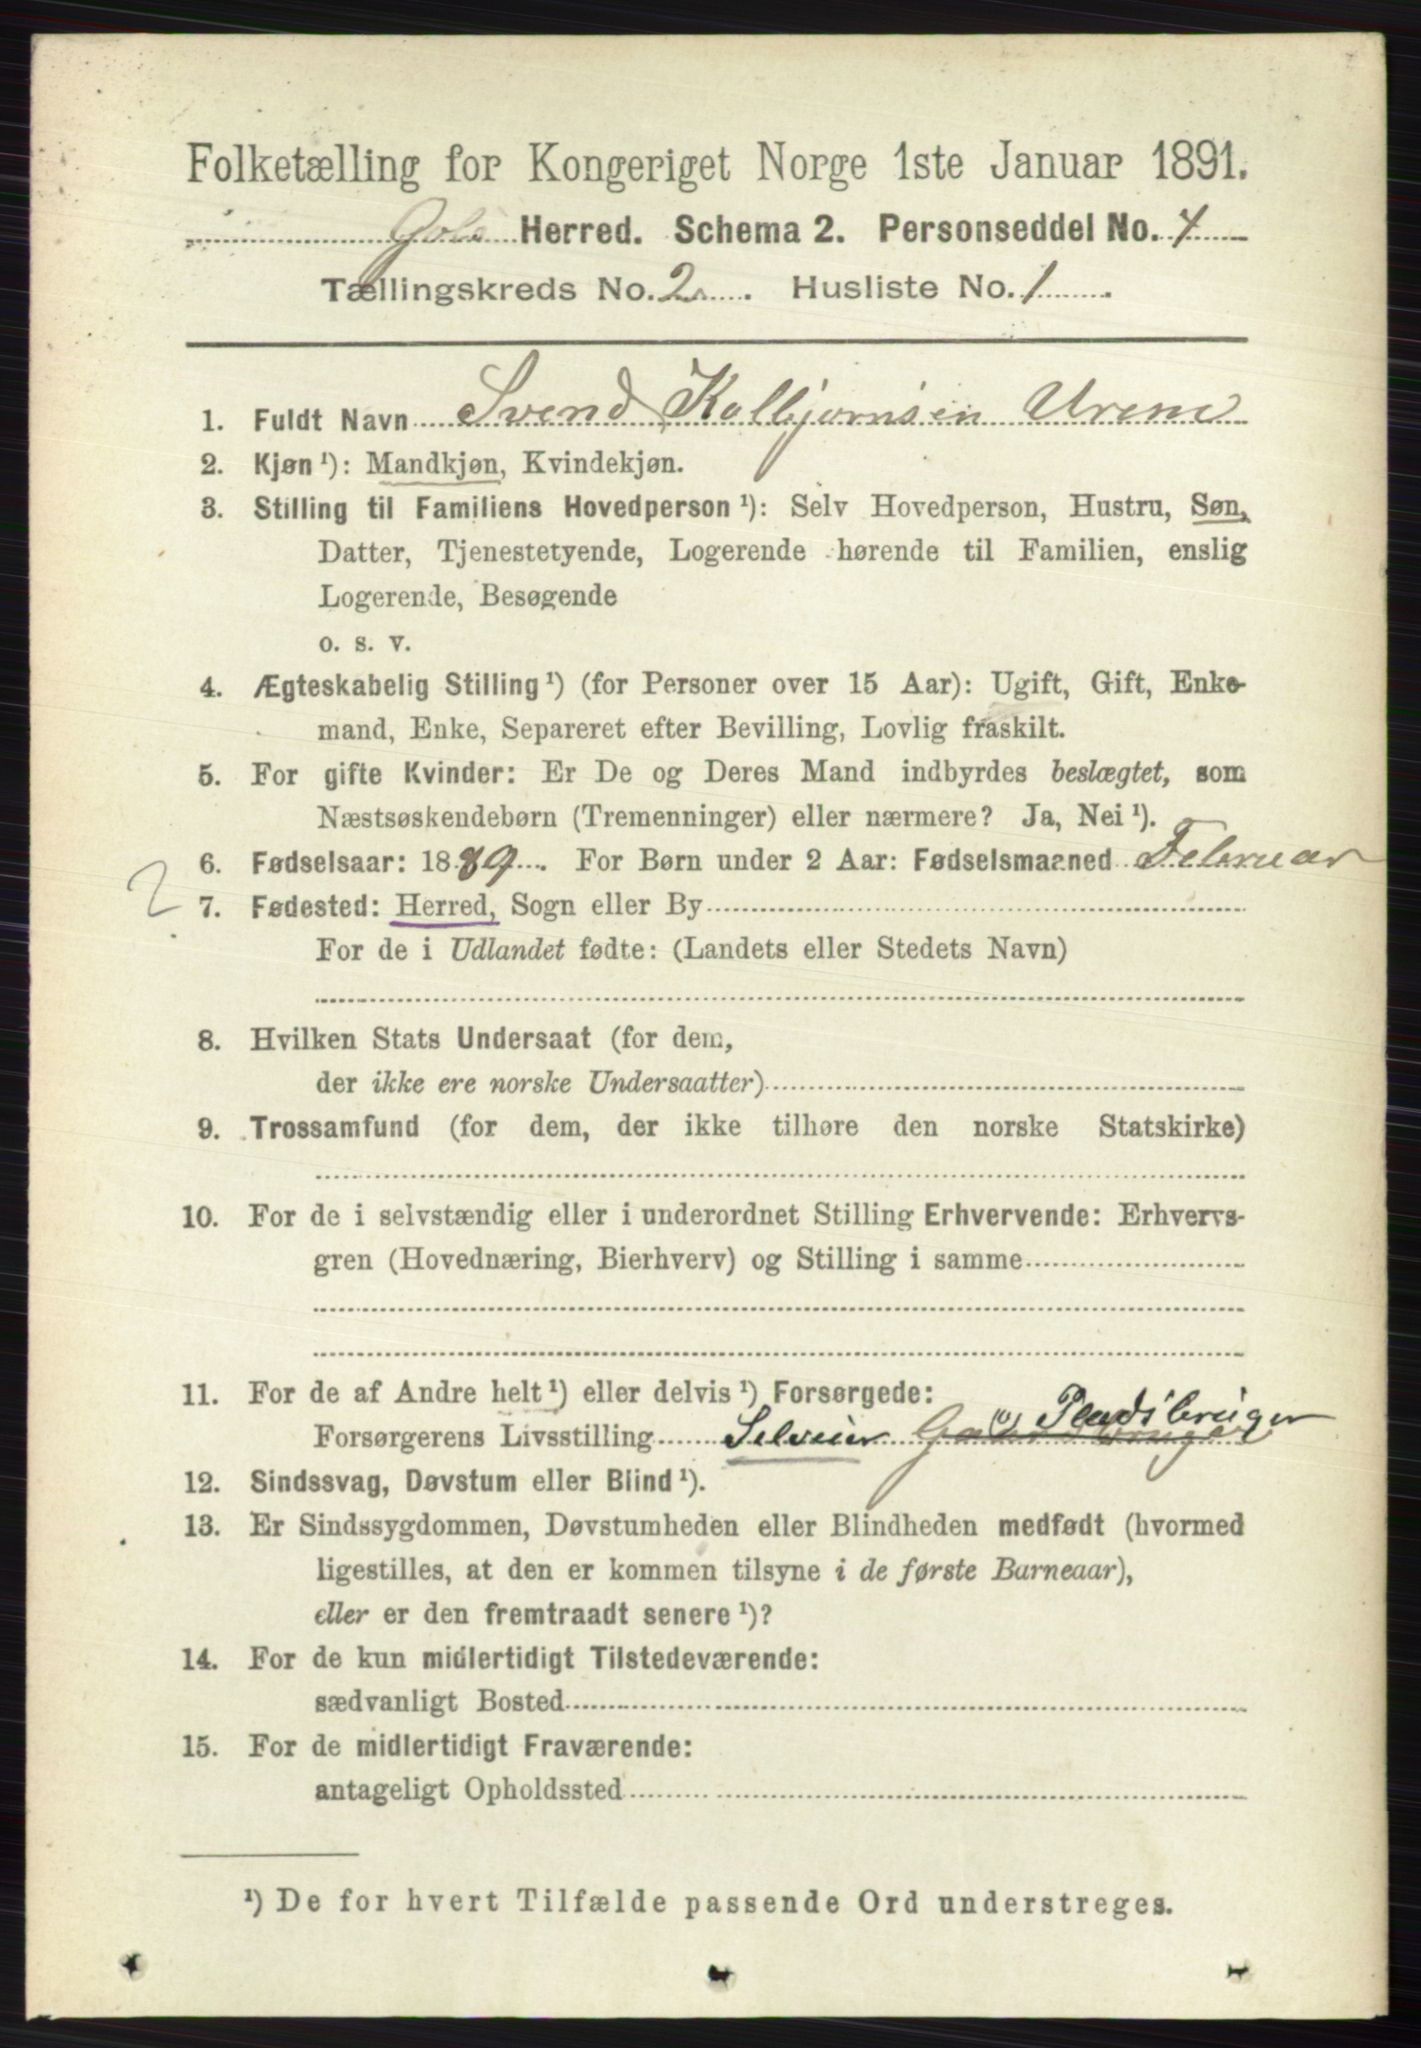 Folketælling for Kongeriget Norge 1ste Januar 1891.
Gols Herred. Schema 2. Personseddel No. 4
Tællingskreds No. 2. Husliste No. 1
1. Fuldt Navn Svend Kolbjørnsen Urene
2. Kjøn ¹): Mandkjøn, Kvindekjøn.
3. Stilling til Familiens Hovedperson ¹): Selv Hovedperson, Hustru, Søn,
Datter, Tjenestetyende, Logerende hørende til Familien, enslig
Logerende, Besøgende
o. s. v.
4. Ægteskabelig Stilling ¹) (for Personer over 15 Aar): Ugift, Gift, Enke-
mand, Enke, Separeret efter Bevilling, Lovlig fraskilt.
5. For gifte Kvinder: Er De og Deres Mand indbyrdes beslægtet, som
Næstsøskendebørn (Tremenninger) eller nærmere? Ja, Nei ¹).
6. Fødselsaar: 1889. For Børn under 2 Aar: Fødselsmaaned Februar
2 7. Fødested: Herred, Sogn eller By
For de i Udlandet fødte: (Landets eller Stedets Navn)
8. Hvilken Stats Undersaat (for dem,
der ikke ere norske Undersaatter)
9. Trossamfund (for dem, der ikke tilhøre den norske Statskirke)
10. For de i selvstændig eller i underordnet Stilling Erhvervende: Erhvervs-
gren (Hovednæring, Bierhverv) og Stilling i samme
11. For de af Andre helt ¹) eller delvis ¹) Forsørgede:
Forsørgerens Livsstilling Selveier Pladsbruger
12. Sindssvag, Døvstum eller Blind ¹).
13. Er Sindssygdommen, Døvstumheden eller Blindheden medfødt (hvormed
ligestilles, at den er kommen tilsyne i de første Barneaar),
eller er den fremtraadt senere ¹)?
14. For de kun midlertidigt Tilstedeværende:
sædvanligt Bosted
15. For de midlertidigt Fraværende:
antageligt Opholdssted
¹) De for hvert Tilfælde passende Ord understreges.